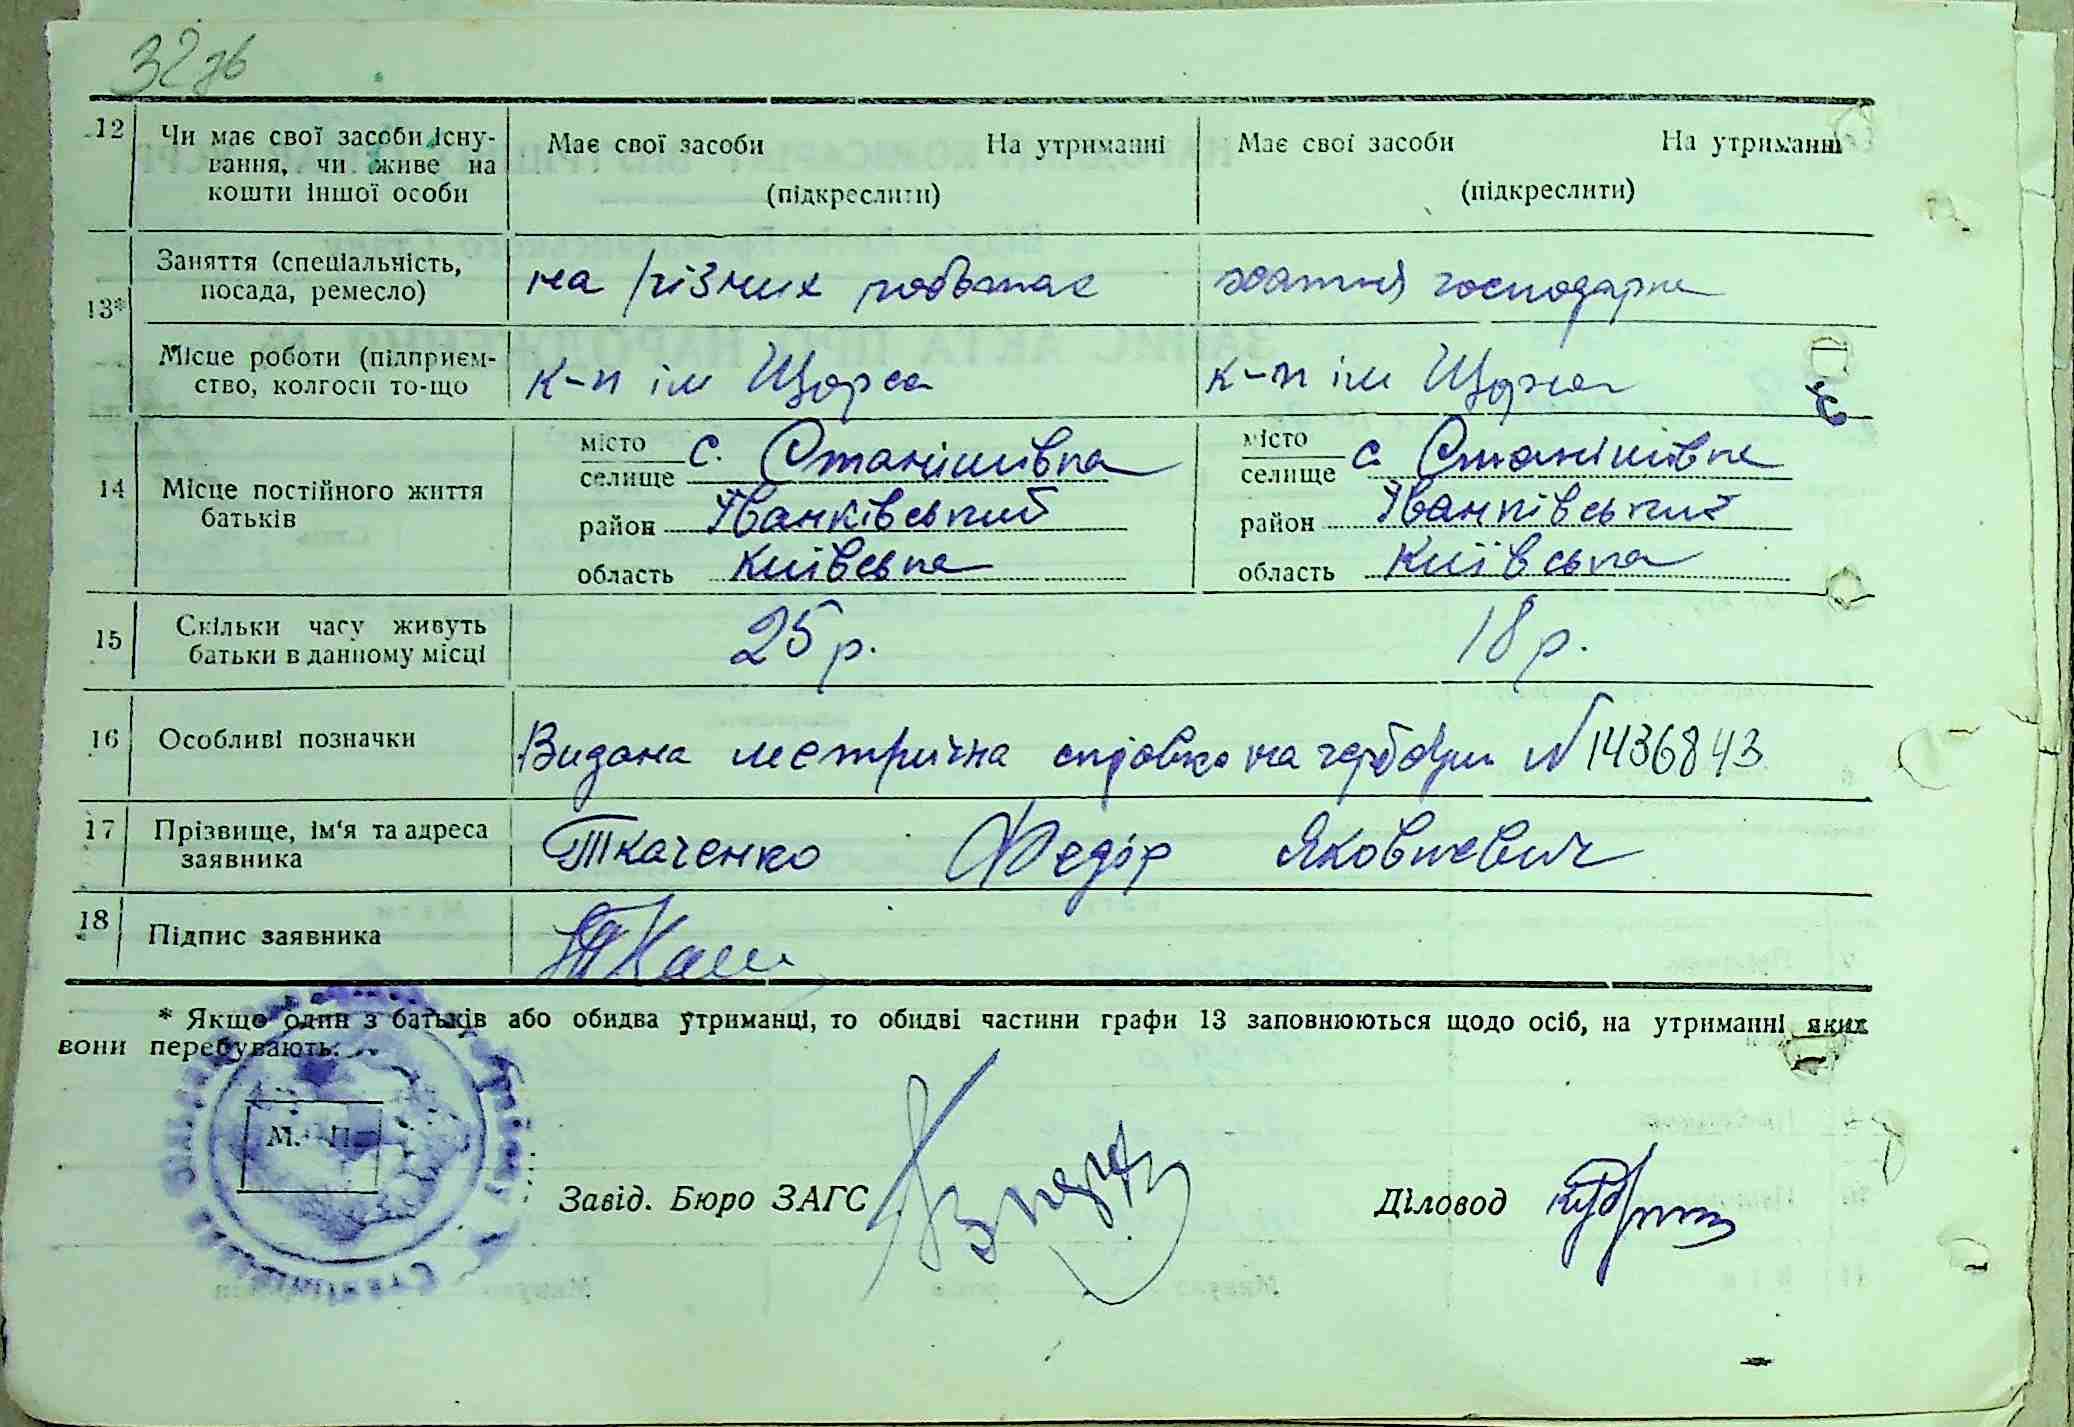 32 зв
12 Чи має свої засоби існу- Має свої засоби На утриманні Має свої засоби На утриманні
вання, чи живе на
кошти іншої особи (підкреслити) (підкреслити)
13* Заняття (спеціальність, на різних роботах хатня господарка
посада, ремесло)
Місце роботи (підприєм- к-п ім Щорса к-п ім Щорса
ство, колгосп то-що
14 Місце постійного життя батьків
місто селище с. Станішівка місто селище с. Станішівка
район Іванківський район Іванківський
область Київська область Київська
15 Скільки часу живуть 25 р. 18 р.
батьки в данному місці
16 Особливі позначки Видана метрична справка на гербовім №1436843
17 Прізвище, ім'я та адреса Ткаченко Федір Яковлевич
заявника
18 Підпис заявника Ткач
* Якщо один з батьків або обидва утриманці, то обидві частини графи 13 заповнюються щодо осіб, на утриманні яких
вони перебувають.
М. П.
Завід. Бюро ЗАГС Діловод